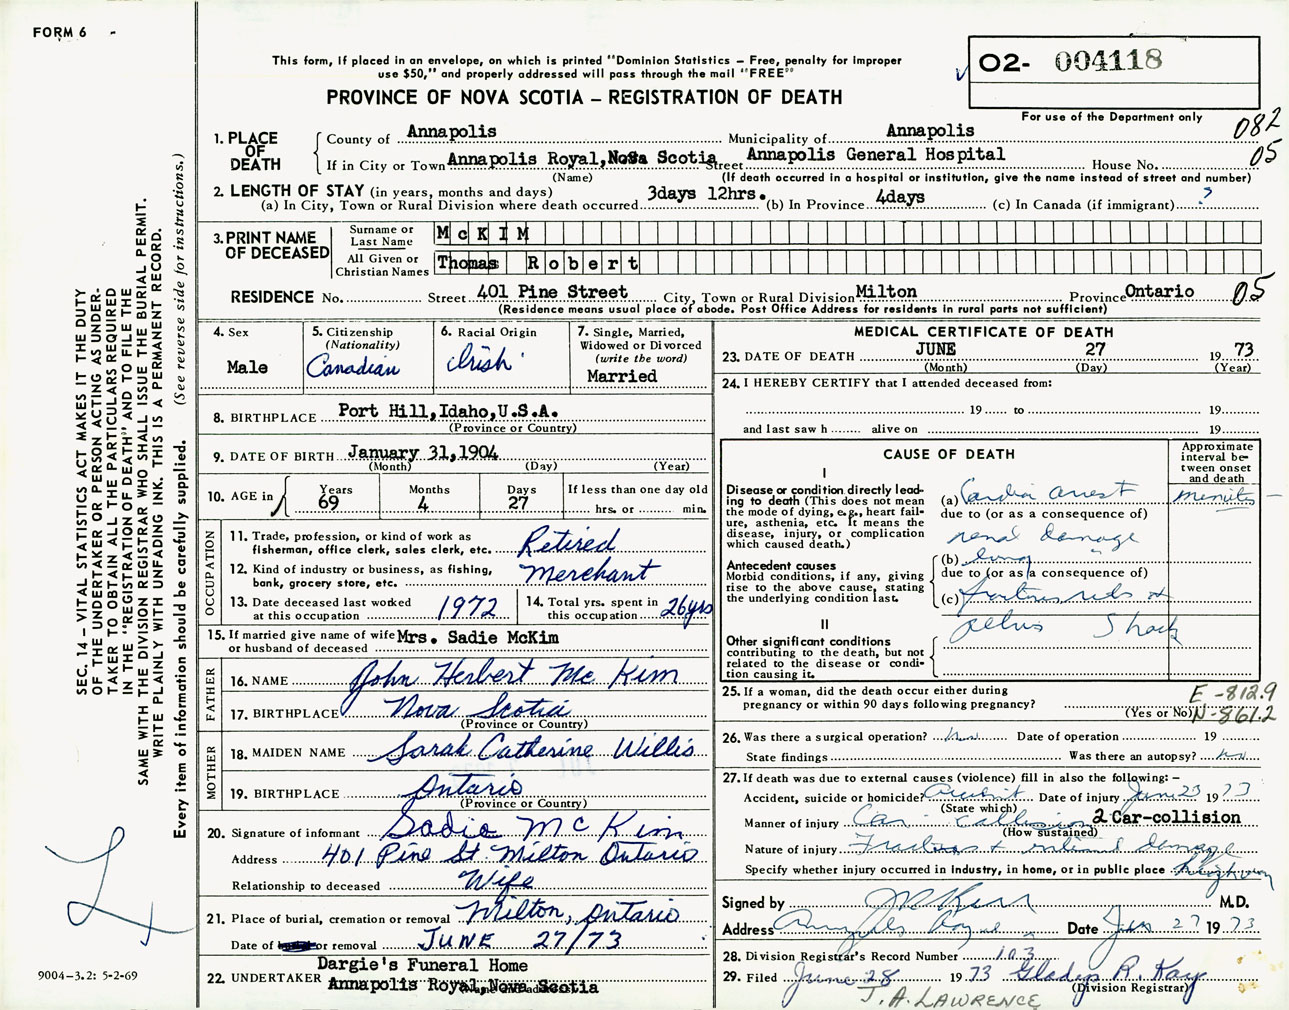 FORM 6 -
O2- 004118
For use of the Department only
This form, if placed in an envelope, on which is printed "Dominion Statistics – Free, penalty for improper
use $50," and properly addressed will pass through the mail "FREE"
PROVINCE OF NOVA SCOTIA – REGISTRATION OF DEATH
082
05
1. PLACE OF DEATH
County of Annapolis Municipality of Annapolis
If in City or Town Annapolis Royal, Nova Scotia Street Annapolis General Hospital House No.
(Name) (If death occurred in a hospital or institution, give the name instead of street and number)
2. LENGTH OF STAY (in years, months and days)
(a) In City, Town or Rural Division where death occurred 3days 12hrs. (b) In Province 4days (c) In Canada (if immigrant) ?
3. PRINT NAME OF DECEASED
Surname or Last Name McKIM
All Given or Christian Names Thomas Robert
RESIDENCE No. Street 401 Pine Street City, Town or Rural Division Milton Province Ontario 05
(Residence means usual place of abode. Post Office Address for residents in rural parts not sufficient)
4. Sex
Male
5. Citizenship
(Nationality)
Canadian
6. Racial Origin
Irish
7. Single, Married,
Widowed or Divorced
(write the word)
Married
8. BIRTHPLACE Port Hill, Idaho, U.S.A.
(Province or Country)
9. DATE OF BIRTH January 31, 1904
(Month) (Day) (Year)
10. AGE in Years 69 Months 4 Days 27 If less than one day old
hrs. or min.
OCCUPATION
11. Trade, profession, or kind of work as
fisherman, office clerk, sales clerk, etc. Retired
12. Kind of industry or business, as fishing,
bank, grocery store, etc. Merchant
13. Date deceased last worked
at this occupation 1972
14. Total yrs. spent in
this occupation 26yrs
15. If married give name of wife
or husband of deceased Mrs. Sadie McKim
FATHER
16. NAME John Herbert McKim
17. BIRTHPLACE Nova Scotia
(Province or Country)
MOTHER
18. MAIDEN NAME Sarah Catherine Willis
19. BIRTHPLACE Ontario
(Province or Country)
20. Signature of informant Sadie McKim
Address 401 Pine St. Milton Ontario
Relationship to deceased Wife
21. Place of burial, cremation or removal Milton, Ontario
Date of or removal JUNE 27/73
22. UNDERTAKER Dargie's Funeral Home
Annapolis Royal, Nova Scotia
MEDICAL CERTIFICATE OF DEATH
23. DATE OF DEATH JUNE 27 19 73
(Month) (Day) (Year)
24. I HEREBY CERTIFY that I attended deceased from:
19 to 19
and last saw h alive on 19
CAUSE OF DEATH
Approximate interval between onset and death
I
Disease or condition directly leading to death (This does not mean the mode of dying, e.g., heart failure, asthenia, etc. It means the disease, injury, or complication which caused death.)
(a) Cardiac arrest minutes
due to (or as a consequence of)
renal damage
Antecedent causes
Morbid conditions, if any, giving rise to the above cause, stating the underlying condition last.
(b) lung "
due to (or as a consequence of)
(c) fractures ribs +
pelvis Shock
II
Other significant conditions contributing to the death, but not related to the disease or condition causing it.
25. If a woman, did the death occur either during
pregnancy or within 90 days following pregnancy?
(Yes or No)
E-812.9
N-861.2
26. Was there a surgical operation? No Date of operation 19
State findings Was there an autopsy? No
27. If death was due to external causes (violence) fill in also the following: –
Accident, suicide or homicide? Accident Date of injury June 23 19 73
(State which)
Manner of injury Car collision 2 Car-collision
(How sustained)
Nature of injury Fractures + internal damage
Specify whether injury occurred in industry, in home, or in public place highway
Signed by M.D.
Address Annapolis Royal Date Jun 27 19 73
28. Division Registrar's Record Number 103
29. Filed June 28 19 73 Gladys R. Kay
(Division Registrar)
J. A. LAWRENCE
SEC. 14 – VITAL STATISTICS ACT MAKES IT THE DUTY
OF THE UNDERTAKER OR PERSON ACTING AS UNDER-
TAKER TO OBTAIN ALL THE PARTICULARS REQUIRED
IN THE "REGISTRATION OF DEATH" AND TO FILE THE
SAME WITH THE DIVISION REGISTRAR WHO SHALL ISSUE THE BURIAL PERMIT.
WRITE PLAINLY WITH UNFADING INK. THIS IS A PERMANENT RECORD.
Every item of information should be carefully supplied. (See reverse side for instructions.)
9004-3.2: 5-2-69